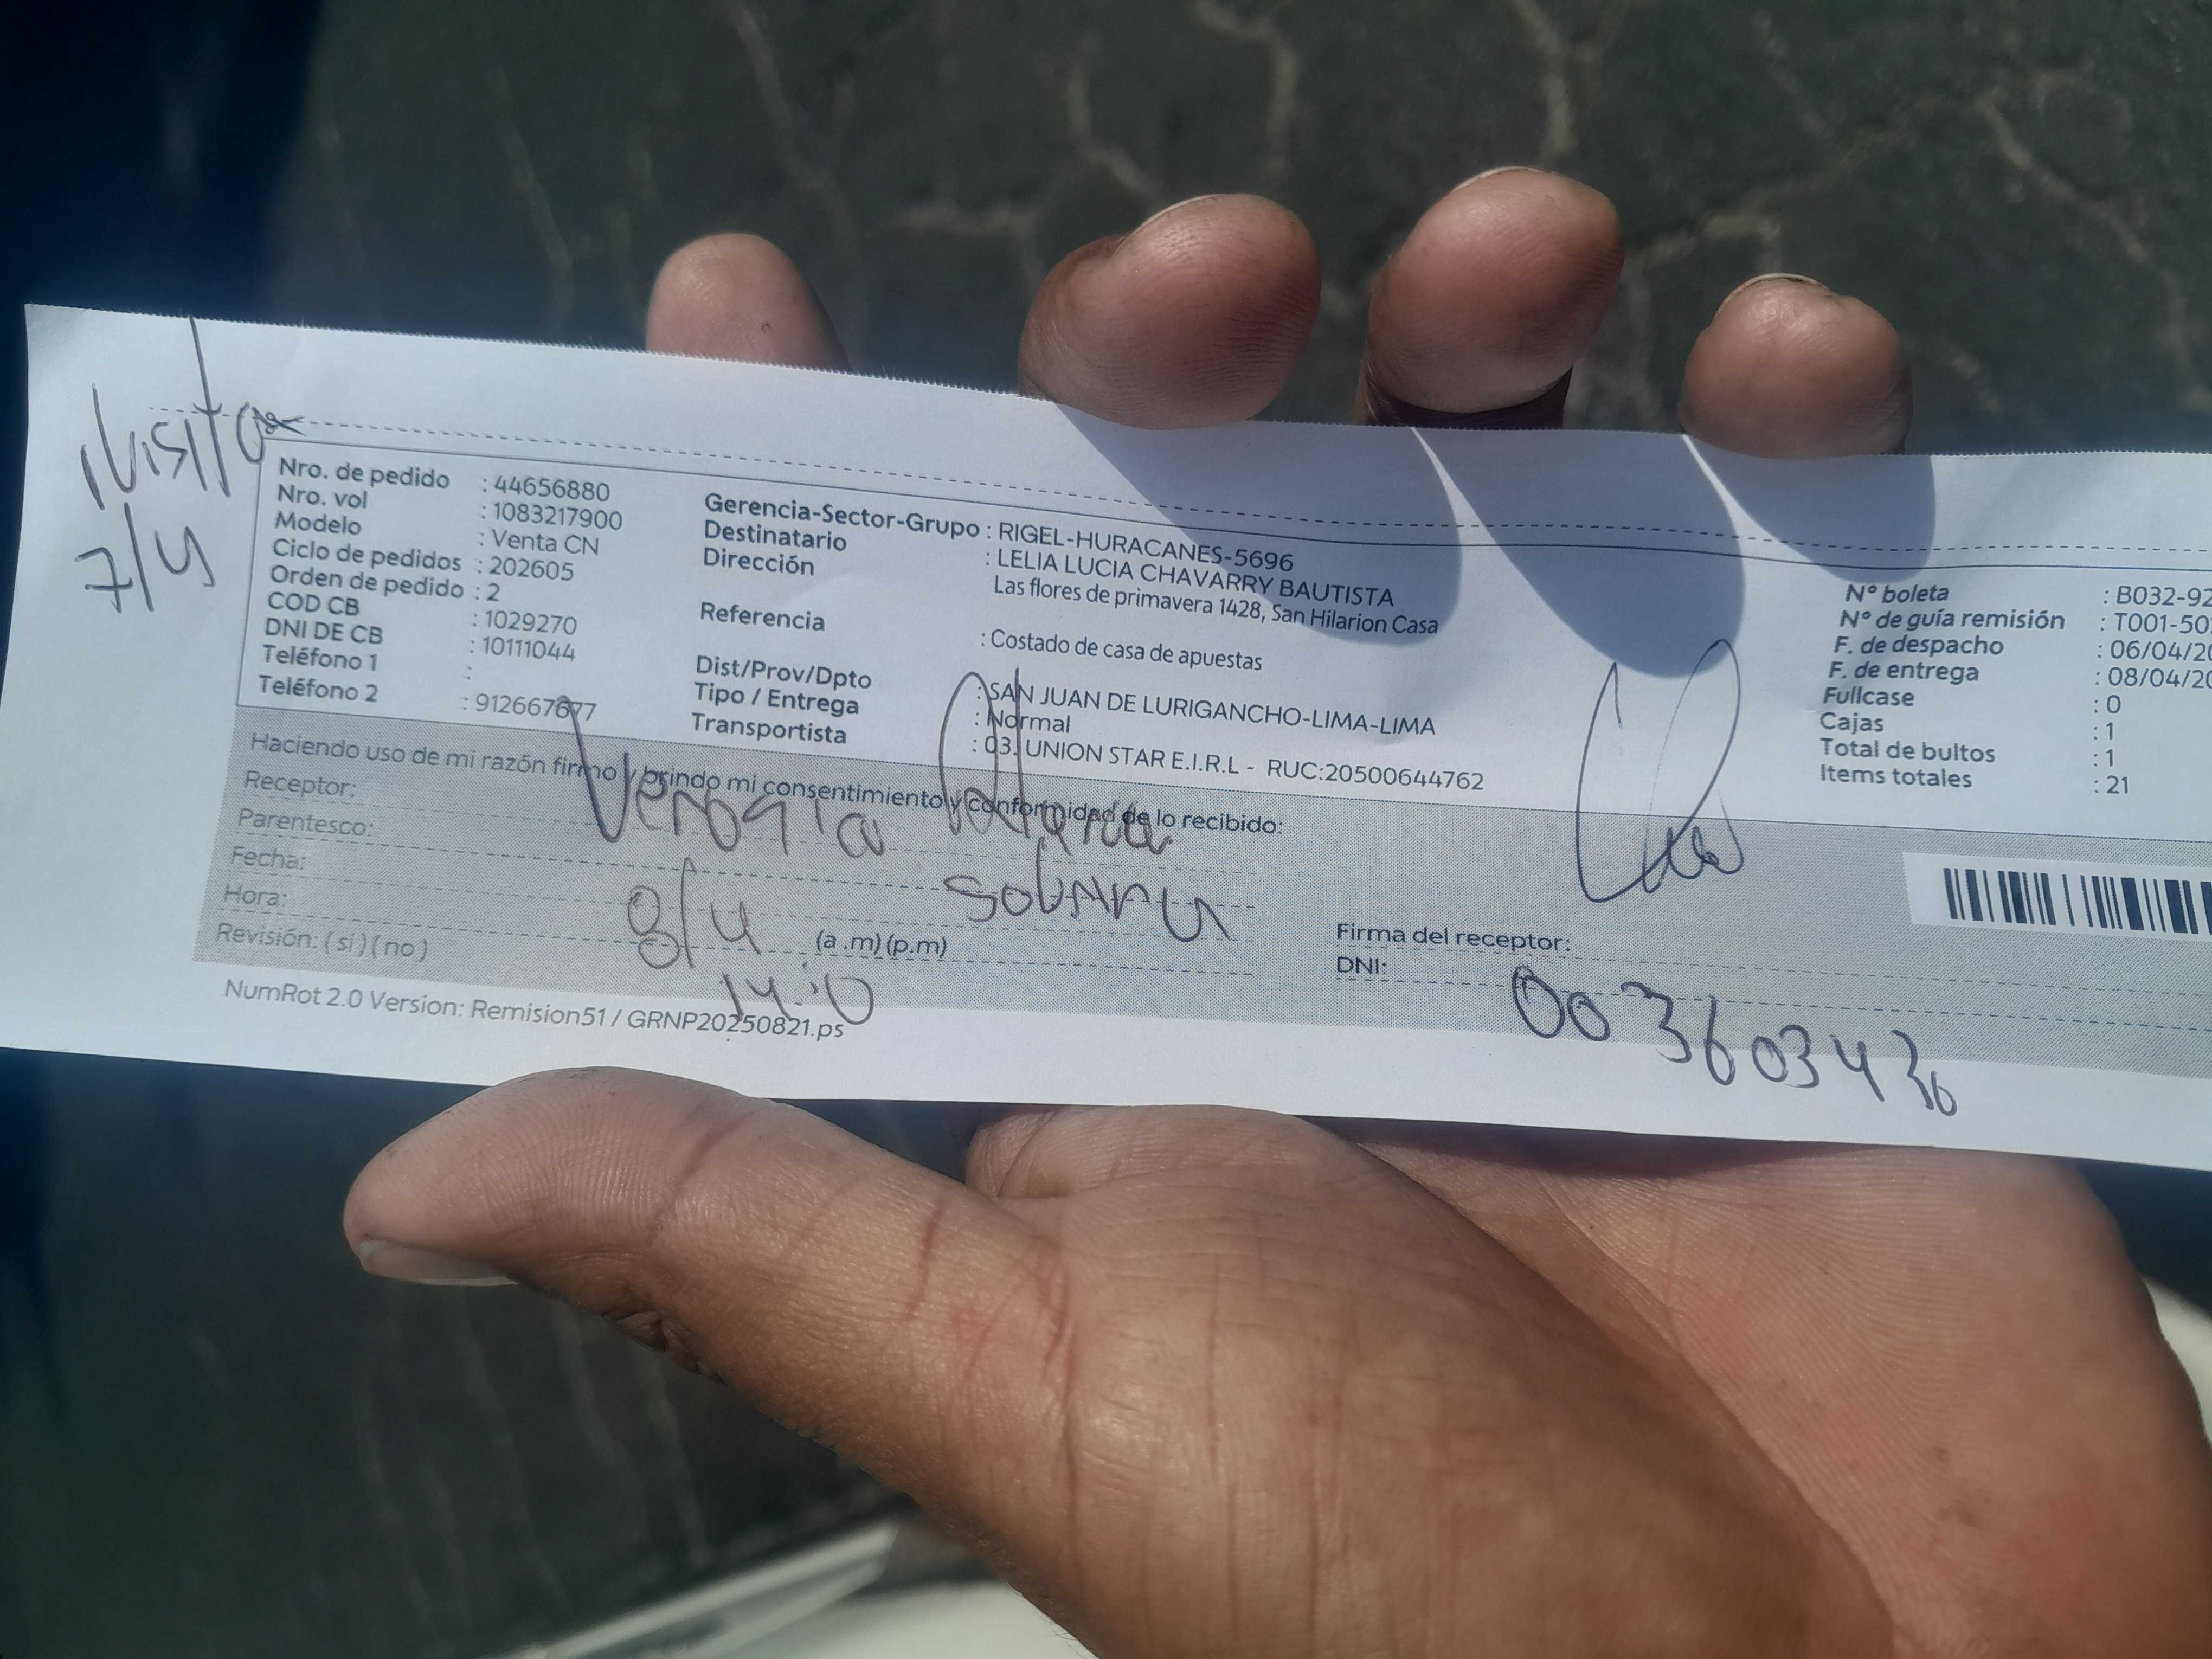 1 visita
7/4
Nro. de pedido : 44656880
Nro. vol : 1083217900
Modelo : Venta CN
Ciclo de pedidos : 202605
Orden de pedido : 2
COD CB : 1029270
DNI DE CB : 10111044
Teléfono 1 :
Teléfono 2 : 912667677
Gerencia-Sector-Grupo : RIGEL-HURACANES-5696
Destinatario : LELIA LUCIA CHAVARRY BAUTISTA
Dirección Las flores de primavera 1428, San Hilarion Casa
Referencia : Costado de casa de apuestas
Dist/Prov/Dpto : SAN JUAN DE LURIGANCHO-LIMA-LIMA
Tipo / Entrega : Normal
Transportista : 03. UNION STAR E.I.R.L - RUC:20500644762
N° boleta : B032-92
N° de guía remisión : T001-50
F. de despacho : 06/04/20
F. de entrega : 08/04/20
Fullcase : 0
Cajas : 1
Total de bultos : 1
Items totales : 21
Haciendo uso de mi razón firmo y brindo mi consentimiento y conformidad de lo recibido:
Receptor:
Parentesco:
Fecha: 8/4
Hora: (a .m) (p.m)
14:10
Revisión: ( si ) ( no )
Firma del receptor:
DNI: 003603436
NumRot 2.0 Version: Remision51 / GRNP20250821.ps